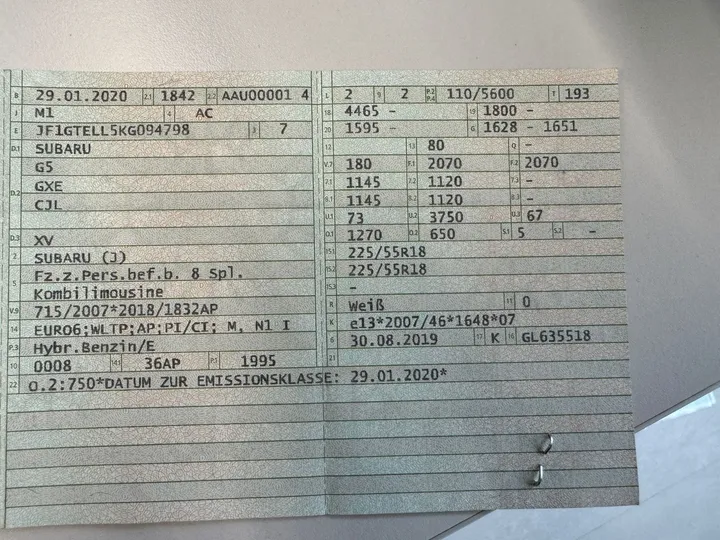 B 29.01.2020 2.1 1842 2.2 AAU00001 4
J M1 4 AC
E JF1GTELL5KG094798 3 7
D.1 SUBARU
G5
D.2 GXE
CJL
D.3 XV
2 SUBARU (J)
5 Fz.z.Pers.bef.b. 8 Spl.
Kombilimousine
V.9 715/2007*2018/1832AP
14 EURO6;WLTP;AP;PI/CI; M, N1 I
P.3 Hybr.Benzin/E
10 0008 14.1 36AP P.1 1995
22 O.2:750*DATUM ZUR EMISSIONSKLASSE: 29.01.2020*
L 2 9 2 P.2 P.4 110/5600 T 193
18 4465 - 19 1800 -
20 1595 - G 1628 - 1651
12 13 80 Q -
V.7 180 F.1 2070 F.2 2070
7.1 1145 7.2 1120 7.3 -
8.1 1145 8.2 1120 8.3 -
U.1 73 U.2 3750 U.3 67
O.1 1270 O.2 650 S.1 5 S.2 -
15.1 225/55R18
15.2 225/55R18
15.3 -
R Weiß 11 0
K e13*2007/46*1648*07
6 30.08.2019 17 K 16 GL635518
21